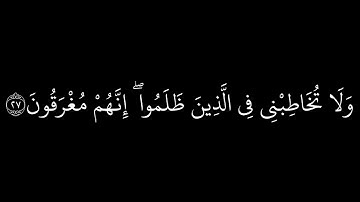 وَلَا تُخَاطِبْنِى فِى الَّذِينَ ظَلَمُوا ۖ إِنَّهُمْ مُغْرَقُونَ ۝٢٧